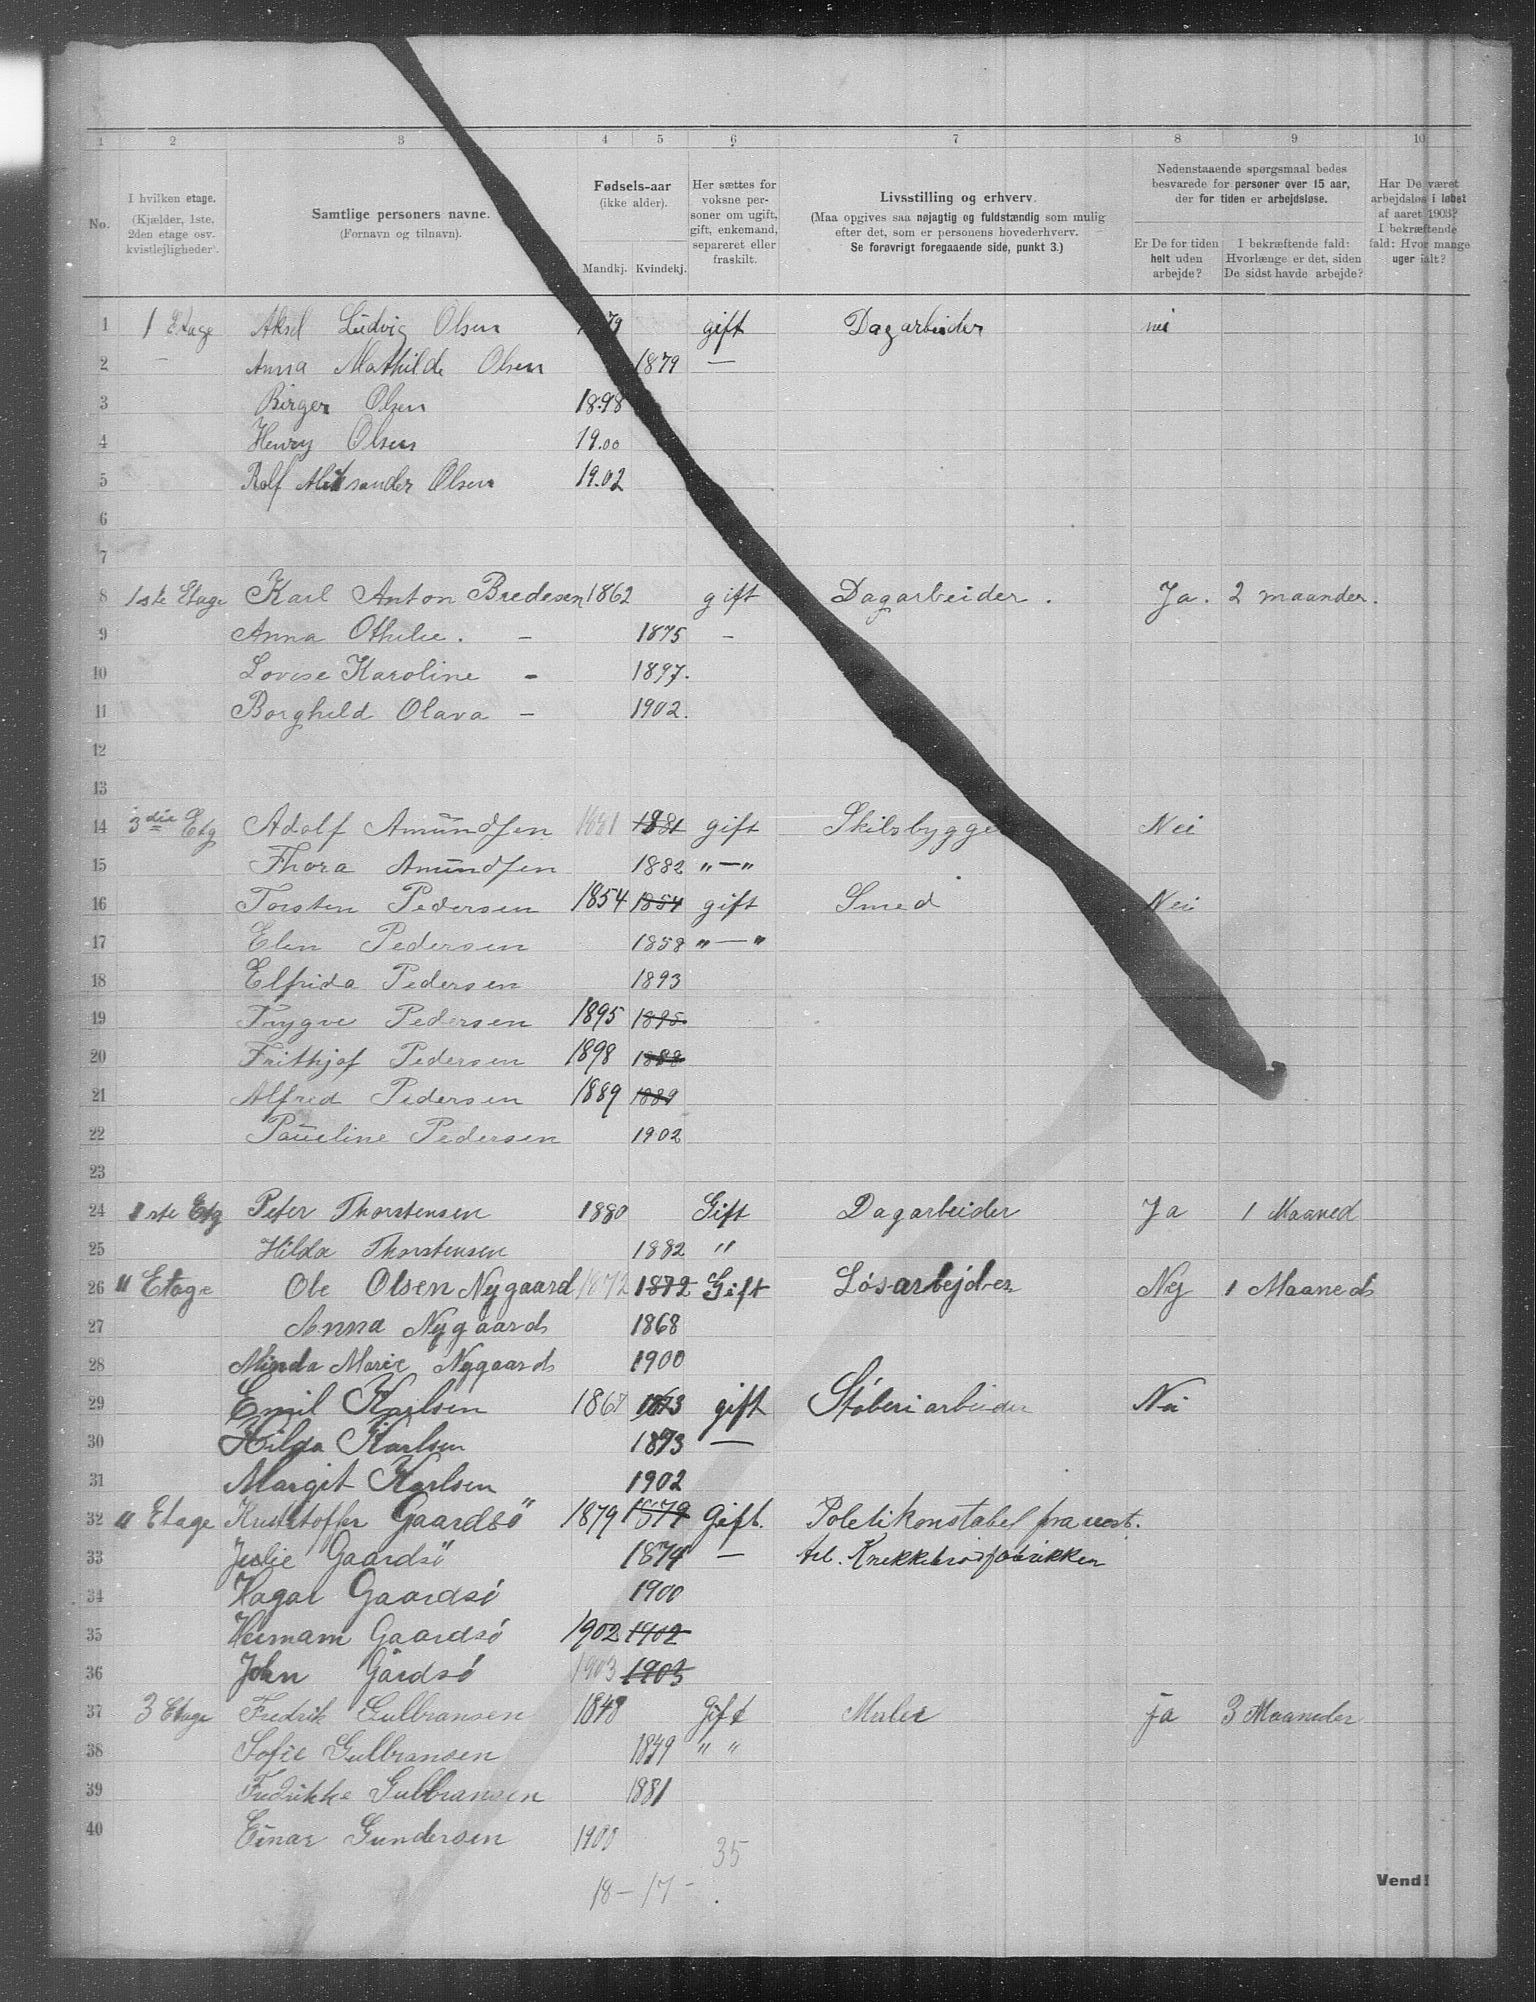 1 2 3 4 5 6 7 8 9 10
No.
I hvilken etage. (Kjælder, 1ste, 2den etage osv. kvistleiligheder).
Samtlige personers navne. (Fornavn og tilnavn).
Fødsels-aar (ikke alder). Mandkj. Kvindekj.
Her sættes for voksne personer om ugift, gift, enkemand, separeret eller fraskilt.
Livsstilling og erhverv. (Maa opgives saa nøjagtig og fuldstændig som mulig efter det, som er personens hovederhverv. Se forøvrigt foregaaende side, punkt 3.)
Nedenstaaende spørgsmaal bedes besvarede for personer over 15 aar, der for tiden er arbejdsløse.
Er De for tiden helt uden arbejde?
I bekræftende fald: Hvorlænge er det, siden De sidst havde arbejde?
Har De været arbejdsløs i løbet af aaret 1903? I bekræftende fald: Hvor mange uger ialt?
1 1 Etage Aksel Ludvig Olsen gift Dagarbeider nei
2 Anna Mathilde Olsen 1879 —
3 Birger Olsen 1898
4 Henry Olsen 19.00
5 Rolf Aleksander Olsen 19.02
6
7
8 1ste Etage Karl Anton Bredesen 1862 gift Dagarbeider. Ja. 2 maander.
9 Anna Othilie. - 1875 -
10 Lovise Karoline - 1897.
11 Borghild Olava - 1902.
12
13
14 3die Etg Adolf Amundsen 1881 1881 gift Skibsbygge Nei
15 Thora Amundsen 1882 " — "
16 Torsten Pedersen 1854 1854 gift Smed Nei
17 Elen Pedersen 1858 " — "
18 Elfrida Pedersen 1893
19 Trygve Pedersen 1895 1895
20 Frithjof Pedersen 1898 1898
21 Alfred Pedersen 1889 1889
22 Paueline Pedersen 1902
23
24 1ste Etg Peter Thorstensen 1880 Gift Dagarbeider Ja 1 Maaned
25 Hilda Thorstensen 1882 "
26 " Etage Ole Olsen Nygaard 1872 1872 Gift Løsarbejder Nej 1 Maaned
27 Anna Nygaard 1868
28 Minda Marie Nygaard 1900
29 Emil Karlsen 1867 1873 gift Støberiarbeider Nei
30 Hilda Karlsen 1873 —
31 Margit Karlsen 1902
32 " Etage Kristoffer Gaardsö 1879 1879 Gift. Poletikonstabel fra
33 Julie Gaardsö 1874 — Knekkebrødfabrikken
34 Hagar Gaardsö 1900
35 Hermam Gaardsö 1902 1902
36 John Gårdsö 1903 1903
37 3 Etage Fredrik Gulbransen 1848 Gift Maler ja 3 Maaneder
38 Sofie Gulbransen 1849 " "
39 Fredrikke Gulbransen 1881
40 Einar Gundersen 1900
35
18 - 17 -
Vend!